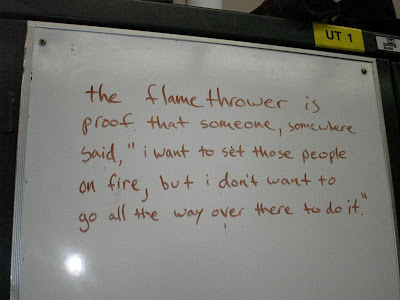 UT 1
the flamethrower is
proof that someone, somewhere
said, "i want to set those people
on fire, but i don't want to
go all the way over there to do it."